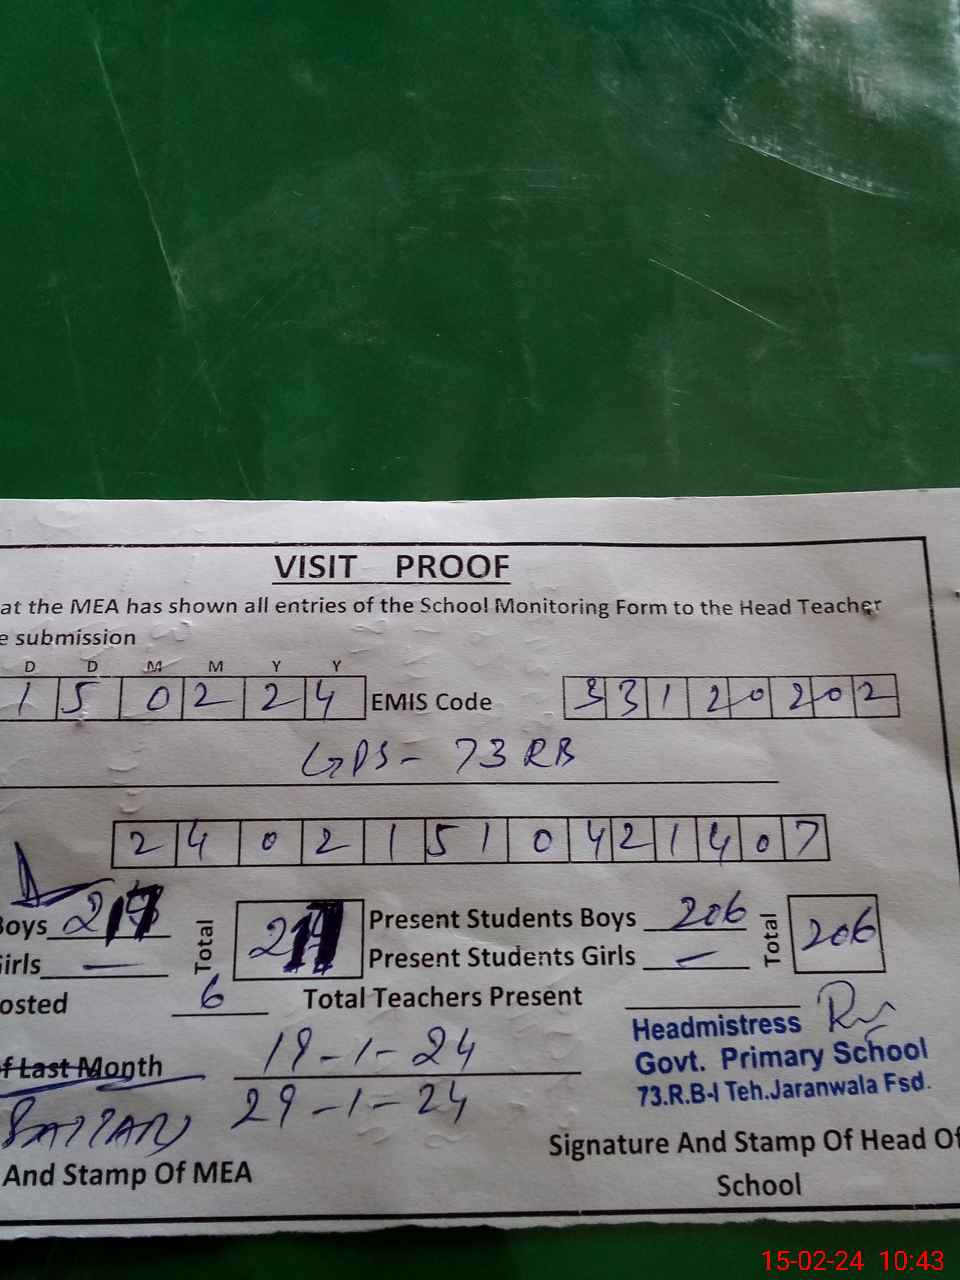 VISIT PROOF
at the MEA has shown all entries of the School Monitoring Form to the Head Teacher
e submission
D D M M Y Y
1 5 0 2 2 4 EMIS Code 3 3 1 2 0 2 0 2
GPS - 73 RB
2 4 0 2 1 5 1 0 4 2 1 4 0 7
Boys 217 Total 217 Present Students Boys 206 Total 206
Girls — Present Students Girls —
osted 6 Total Teachers Present
Headmistress
Govt. Primary School
73.R.B-I Teh.Jaranwala Fsd.
f Last Month 19-1-24
29-1-24
And Stamp Of MEA
Signature And Stamp Of Head Of
School
15-02-24 10:43